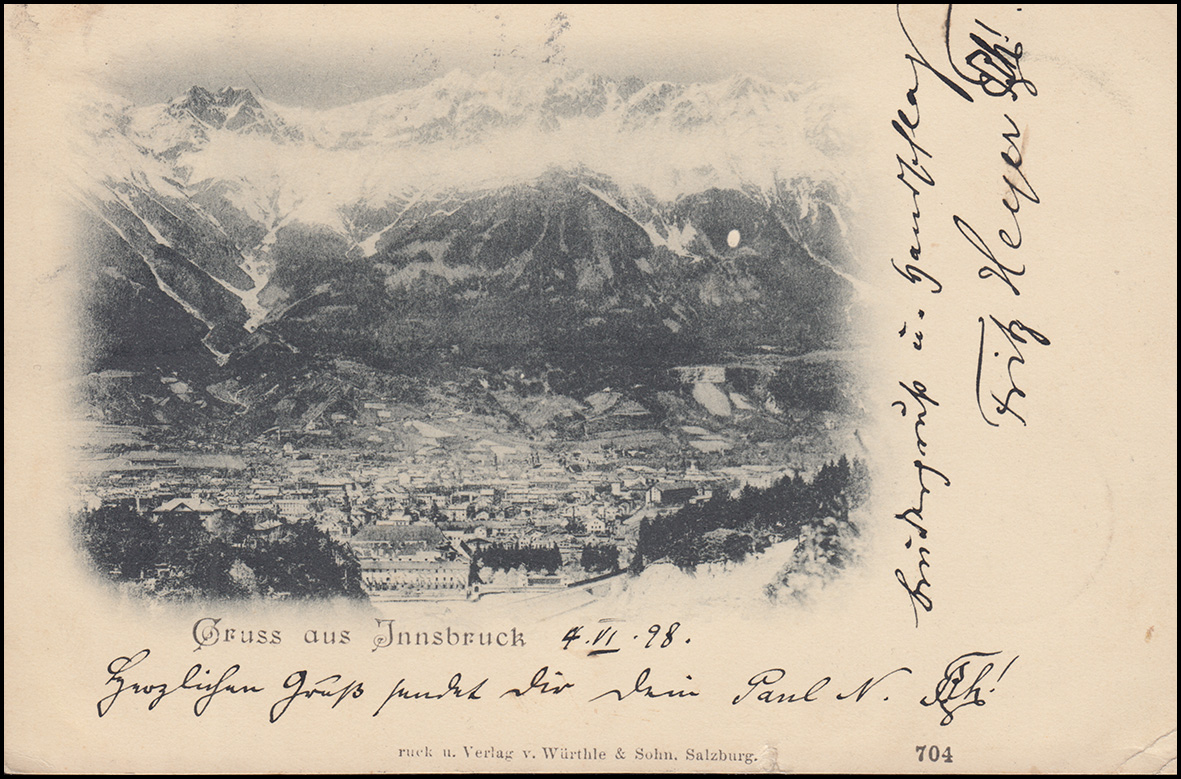 Gruss aus Innsbruck 4.VI.98.
Herzlichen Gruß sendet Dir Dein Paul N.
ruck u. Verlag v. Würthle & Sohn, Salzburg.
704
Brudergruß u. Handschlag
Fritz Heyer